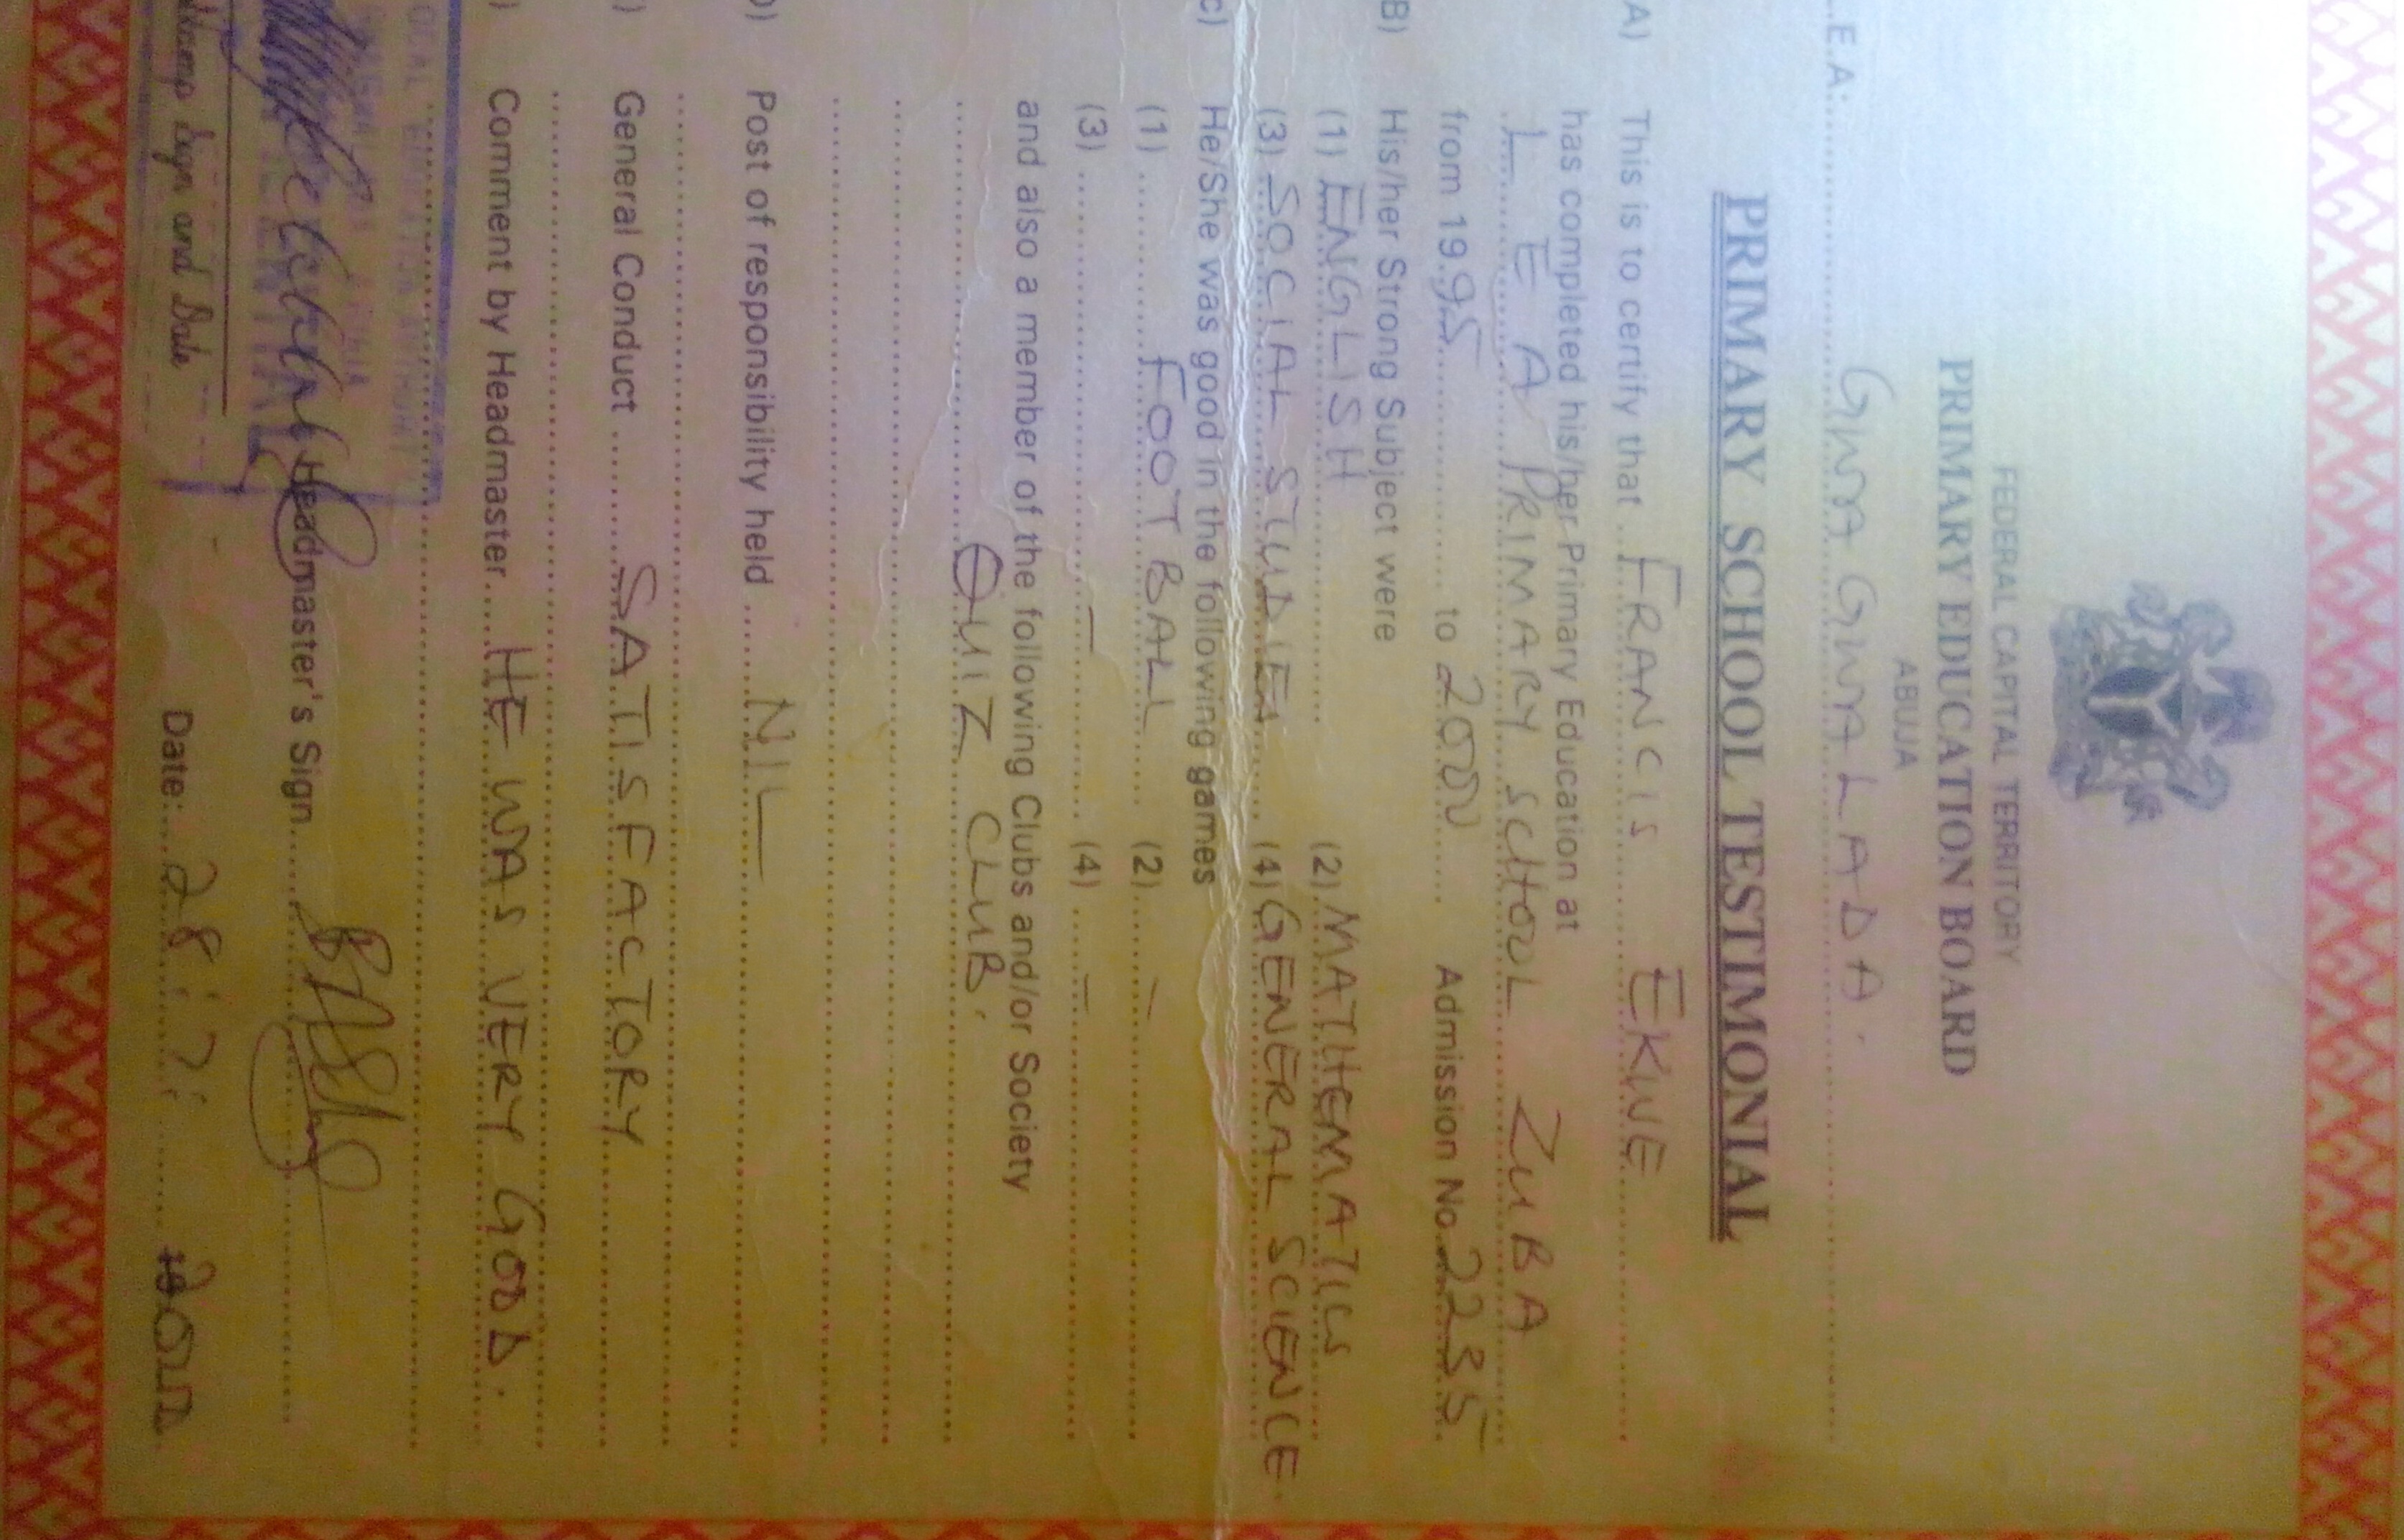 FEDERAL CAPITAL TERRITORY
PRIMARY EDUCATION BOARD
ABUJA
L.E.A: GWAGWALADA.
PRIMARY SCHOOL TESTIMONIAL
A) This is to certify that FRANCIS EKWE
has completed his/her Primary Education at
L E A PRIMARY SCHOOL ZUBA
from 1995 to 2000 Admission No. 2235
B) His/her Strong Subject were
(1) ENGLISH (2) MATHEMATICS
(3) SOCIAL STUDIES (4) GENERAL SCIENCE
C) He/She was good in the following games
(1) FOOTBALL (2) –
(3) – (4) –
and also a member of the following Clubs and/or Society
QUIZ CLUB.
D) Post of responsibility held NIL
) General Conduct SATISFACTORY
) Comment by Headmaster HE WAS VERY GOOD.
Headmaster's Sign
Stamp Sign and Date Date: 28 : 7 : 2000